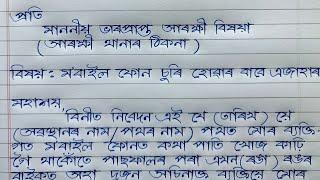 প্ৰতি
মাননীয় ভাৰপ্ৰাপ্ত আৰক্ষী বিষয়া
(আৰক্ষী থানাৰ ঠিকনা)
বিষয়: ম'বাইল ফোন চুৰি হোৱাৰ বাবে এজাহাৰ
মহাশয়,
বিনীত নিবেদন এই যে (তাৰিখ) যে
(অৱস্থানৰ নাম/পথৰ নাম) পথত মোৰ ব্যক্তি-
গত মবাইল ফোনত কথা পাতি খোজ কাঢ়ি
গৈ থাকোঁতে পাছফালৰ পৰা এখন (ৰঙা) ৰঙৰ
বাইকত অহা দুজন অচিনাক্ত ব্যক্তিয়ে মোৰ